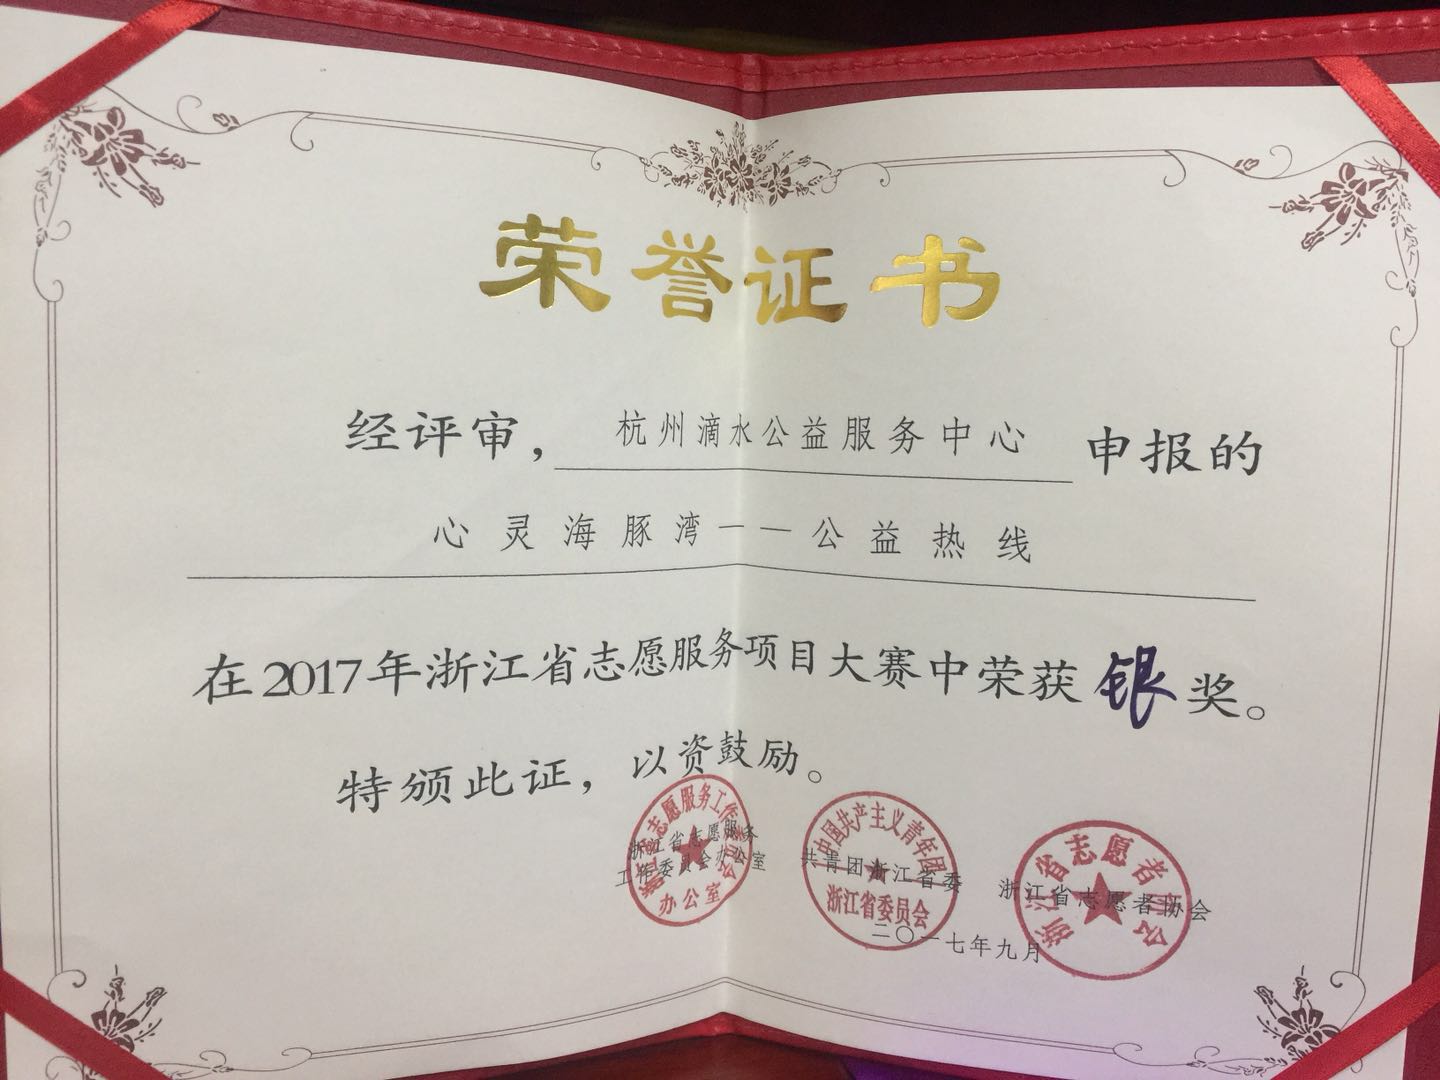 荣誉证书
经评审，杭州滴水公益服务中心申报的
心灵海豚湾——公益热线
在2017年浙江省志愿服务项目大赛中荣获银奖。
特颁此证，以资鼓励。
浙江省志愿服务
工作委员会办公室
共青团浙江省委
浙江省志愿者协会
二〇一七年九月
办公室
中国共产主义青年团
浙江省委员会
浙江省志愿者协会